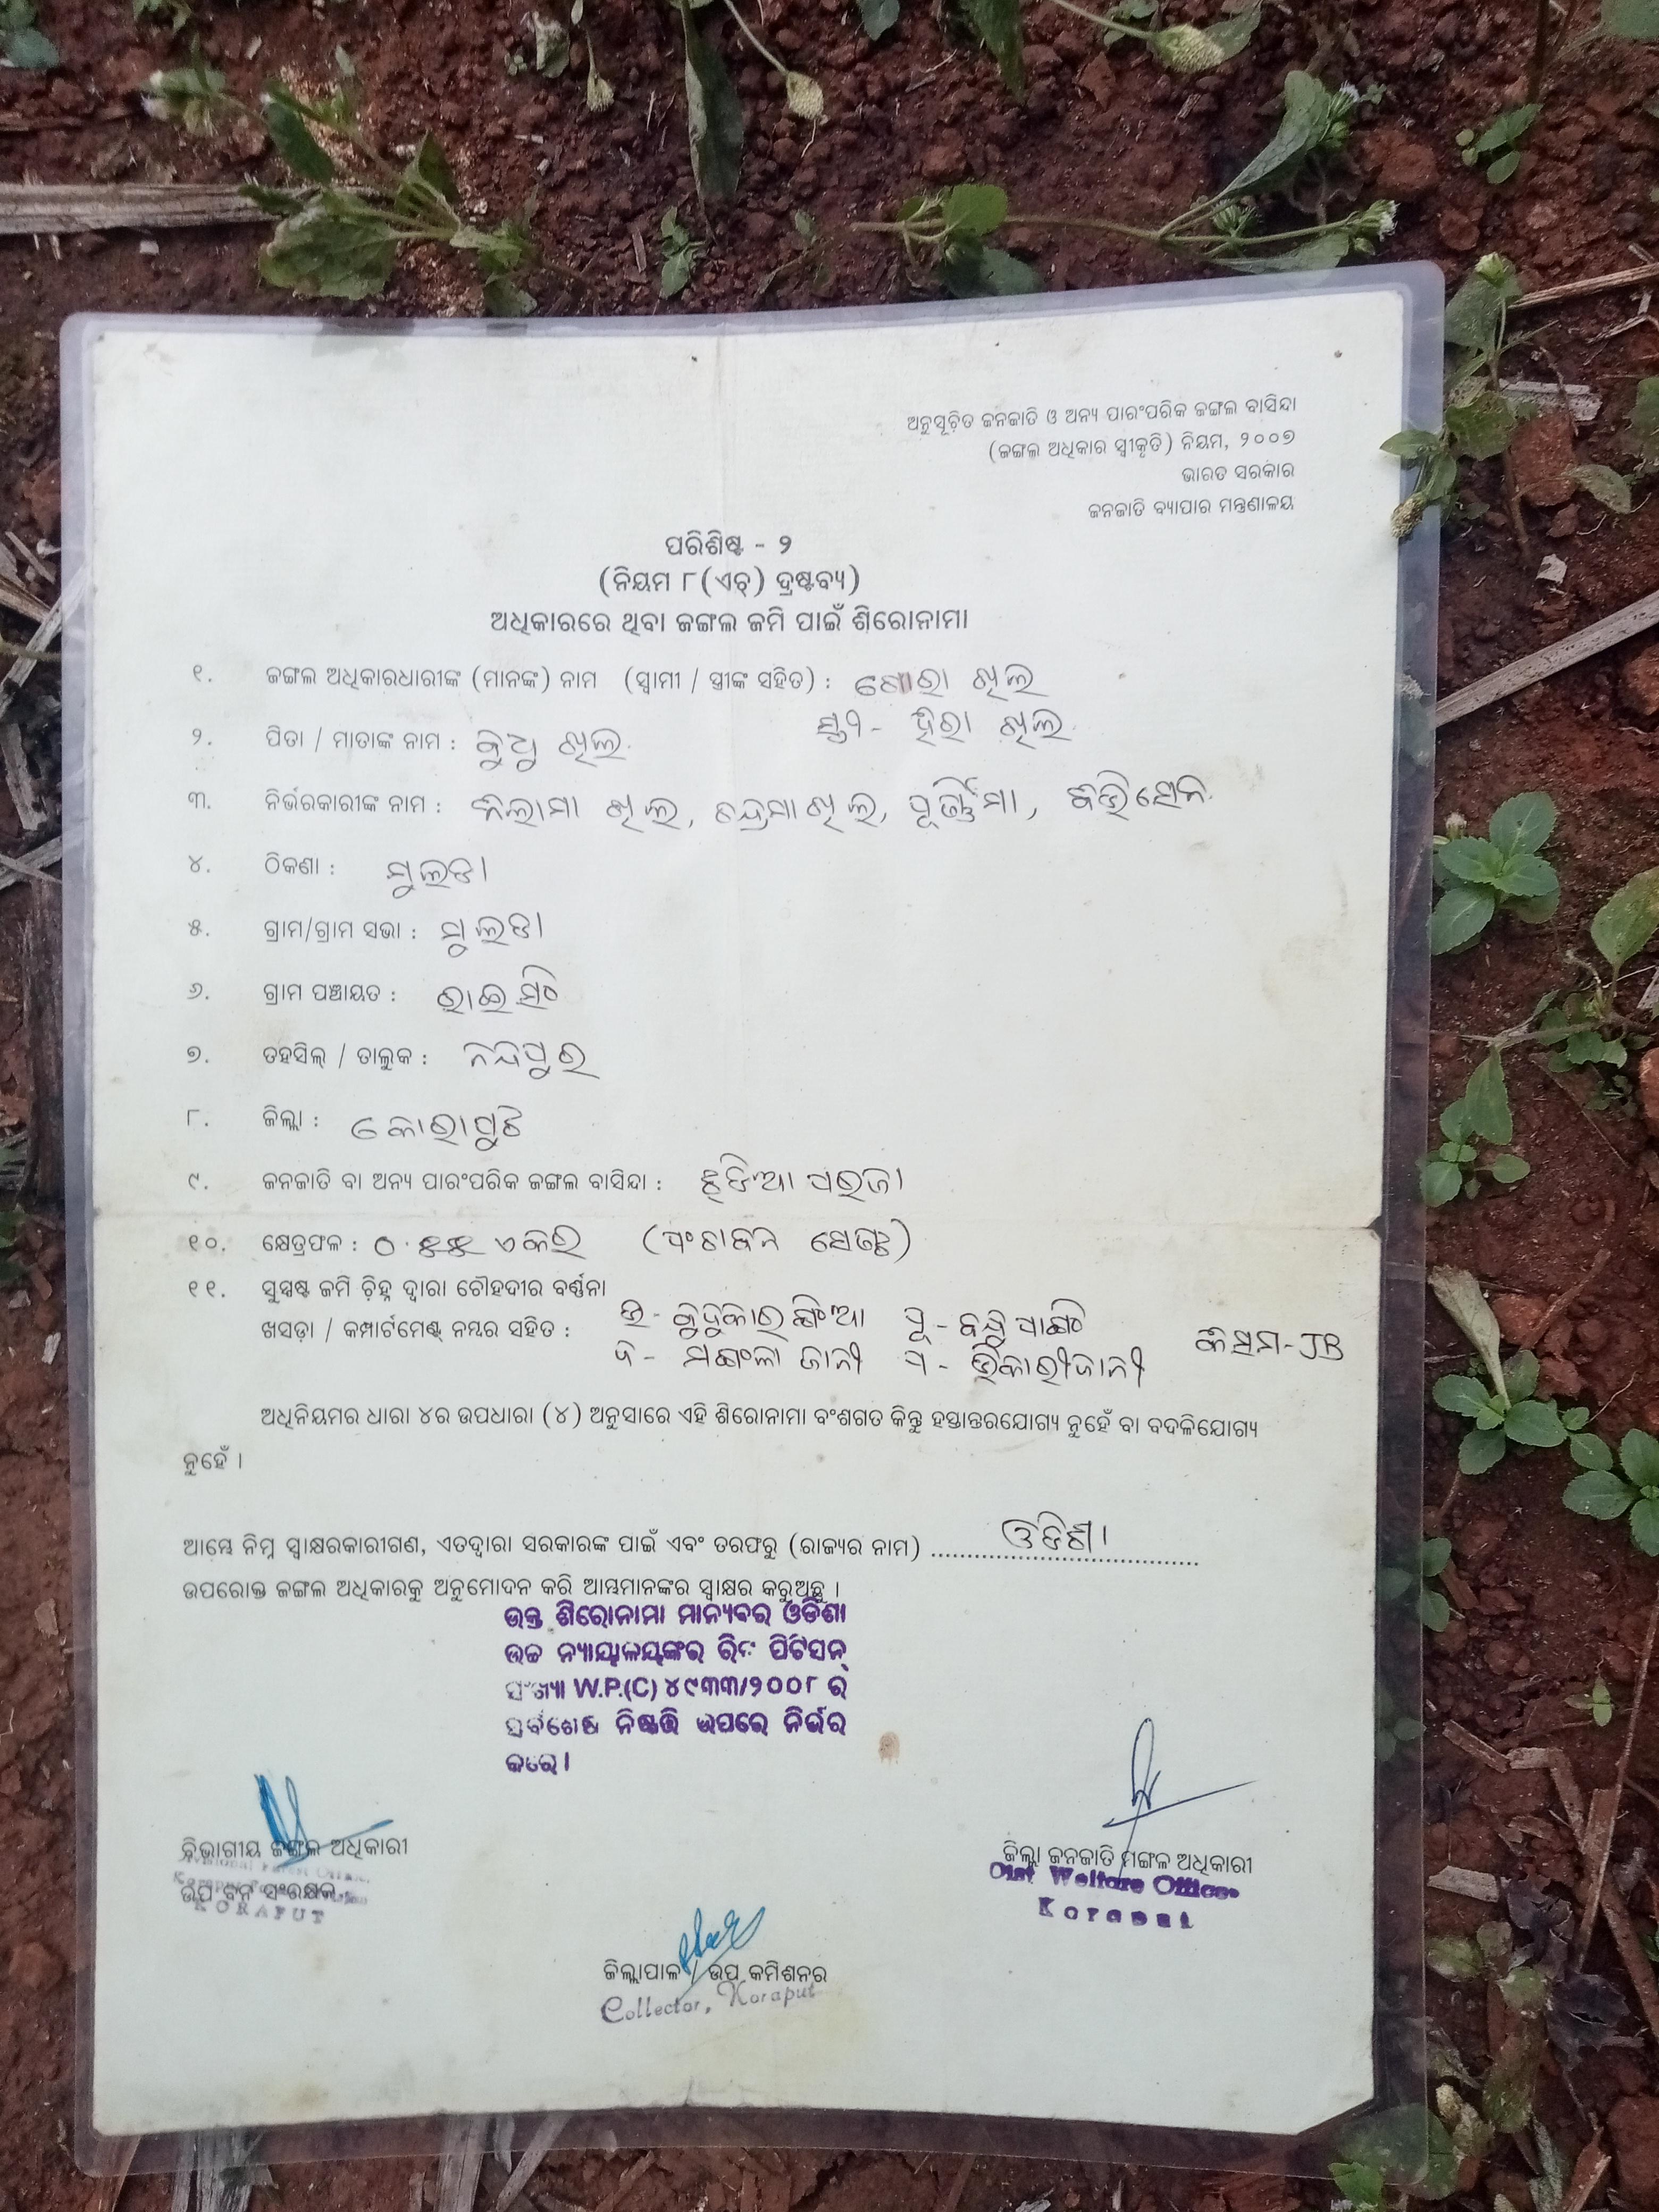 ଅନୁସୂଚିତ ଜନଜାତି ଓ ଅନ୍ୟ ପାରଂପରିକ ଜଙ୍ଗଲ ବାସିନ୍ଦା
(ଜଙ୍ଗଲ ଅଧିକାର ସ୍ୱୀକୃତି) ନିୟମ, ୨୦୦୭
ଭାରତ ସରକାର
ଜନଜାତି ବ୍ୟାପାର ମନ୍ତ୍ରଣାଳୟ
ପରିଶିଷ୍ଟ - ୨
(ନିୟମ ୮(ଏଚ୍) ଦ୍ରଷ୍ଟବ୍ୟ)
ଅଧିକାରରେ ଥିବା ଜଙ୍ଗଲ ଜମି ପାଇଁ ଶିରୋନାମା
୧. ଜଙ୍ଗଲ ଅଧିକାରଧାରୀଙ୍କ (ମାନଙ୍କ) ନାମ (ସ୍ୱାମୀ / ସ୍ତ୍ରୀଙ୍କ ସହିତ) : ଖିଲ
ହିରା ଖିଲ
୨. ପିତା / ମାତାଙ୍କ ନାମ : ବୁଧୁ ଖିଲ
୩. ନିର୍ଭରକାରୀଙ୍କ ନାମ : ଖିଲ, ଚନ୍ଦ୍ରମା ଖିଲ, ପୂର୍ଣ୍ଣିମା,
୪. ଠିକଣା : ମୁଲଡା
୫. ଗ୍ରାମ/ଗ୍ରାମ ସଭା : ମୁଲଡା
୬. ଗ୍ରାମ ପଞ୍ଚାୟତ :
୭. ତହସିଲ୍ / ତାଲୁକ : ନନ୍ଦପୁର
୮. ଜିଲ୍ଲା : କୋରାପୁଟ
୯. ଜନଜାତି ବା ଅନ୍ୟ ପାରଂପରିକ ଜଙ୍ଗଲ ବାସିନ୍ଦା : ପରଜା
୧୦. କ୍ଷେତ୍ରଫଳ : ୦.୫୫ ଏକର (ପଂଚାବନ ସେଣ୍ଟ)
୧୧. ସୁସ୍ପଷ୍ଟ ଜମି ଚିହ୍ନ ଦ୍ୱାରା ଚୌହଦୀର ବର୍ଣ୍ଣନା
ଖସଡ଼ା / କମ୍ପାର୍ଟମେଣ୍ଟ୍ ନମ୍ବର ସହିତ : ଉ - ପୂ - କିସମ-JB
ଦ - ଜାନୀ ପ - ଭିକାରୀ ଜାନୀ
ଅଧିନିୟମର ଧାରା ୪ର ଉପଧାରା (୪) ଅନୁସାରେ ଏହି ଶିରୋନାମା ବଂଶଗତ କିନ୍ତୁ ହସ୍ତାନ୍ତରଯୋଗ୍ୟ ନୁହେଁ ବା ବଦଳିଯୋଗ୍ୟ
ନୁହେଁ ।
ଆମ୍ଭେ ନିମ୍ନ ସ୍ୱାକ୍ଷରକାରୀଗଣ, ଏତଦ୍ୱାରା ସରକାରଙ୍କ ପାଇଁ ଏବଂ ତରଫରୁ (ରାଜ୍ୟର ନାମ) ଓଡିଶା
ଉପରୋକ୍ତ ଜଙ୍ଗଲ ଅଧିକାରକୁ ଅନୁମୋଦନ କରି ଆମ୍ଭମାନଙ୍କର ସ୍ୱାକ୍ଷର କରୁଅଛୁ ।
ଉକ୍ତ ଶିରୋନାମା ମାନ୍ୟବର ଓଡିଶା
ଉଚ୍ଚ ନ୍ୟାୟାଳୟଙ୍କର ରିଟ ପିଟିସନ୍
ସଂଖ୍ୟା W.P.(C) ୪୯୩୩/୨୦୦୮ ର
ସର୍ବଶେଷ ନିଷ୍ପତ୍ତି ଉପରେ ନିର୍ଭର
କରେ ।
ବିଭାଗୀୟ ଜଙ୍ଗଲ ଅଧିକାରୀ
ଉପ ବନ ସଂରକ୍ଷକ
KORAPUT
ଜିଲ୍ଲା ଜନଜାତି ମଙ୍ଗଳ ଅଧିକାରୀ
Dist Welfare Officer
Koraput
ଜିଲ୍ଲାପାଳ / ଉପ କମିଶନର
Collector, Koraput